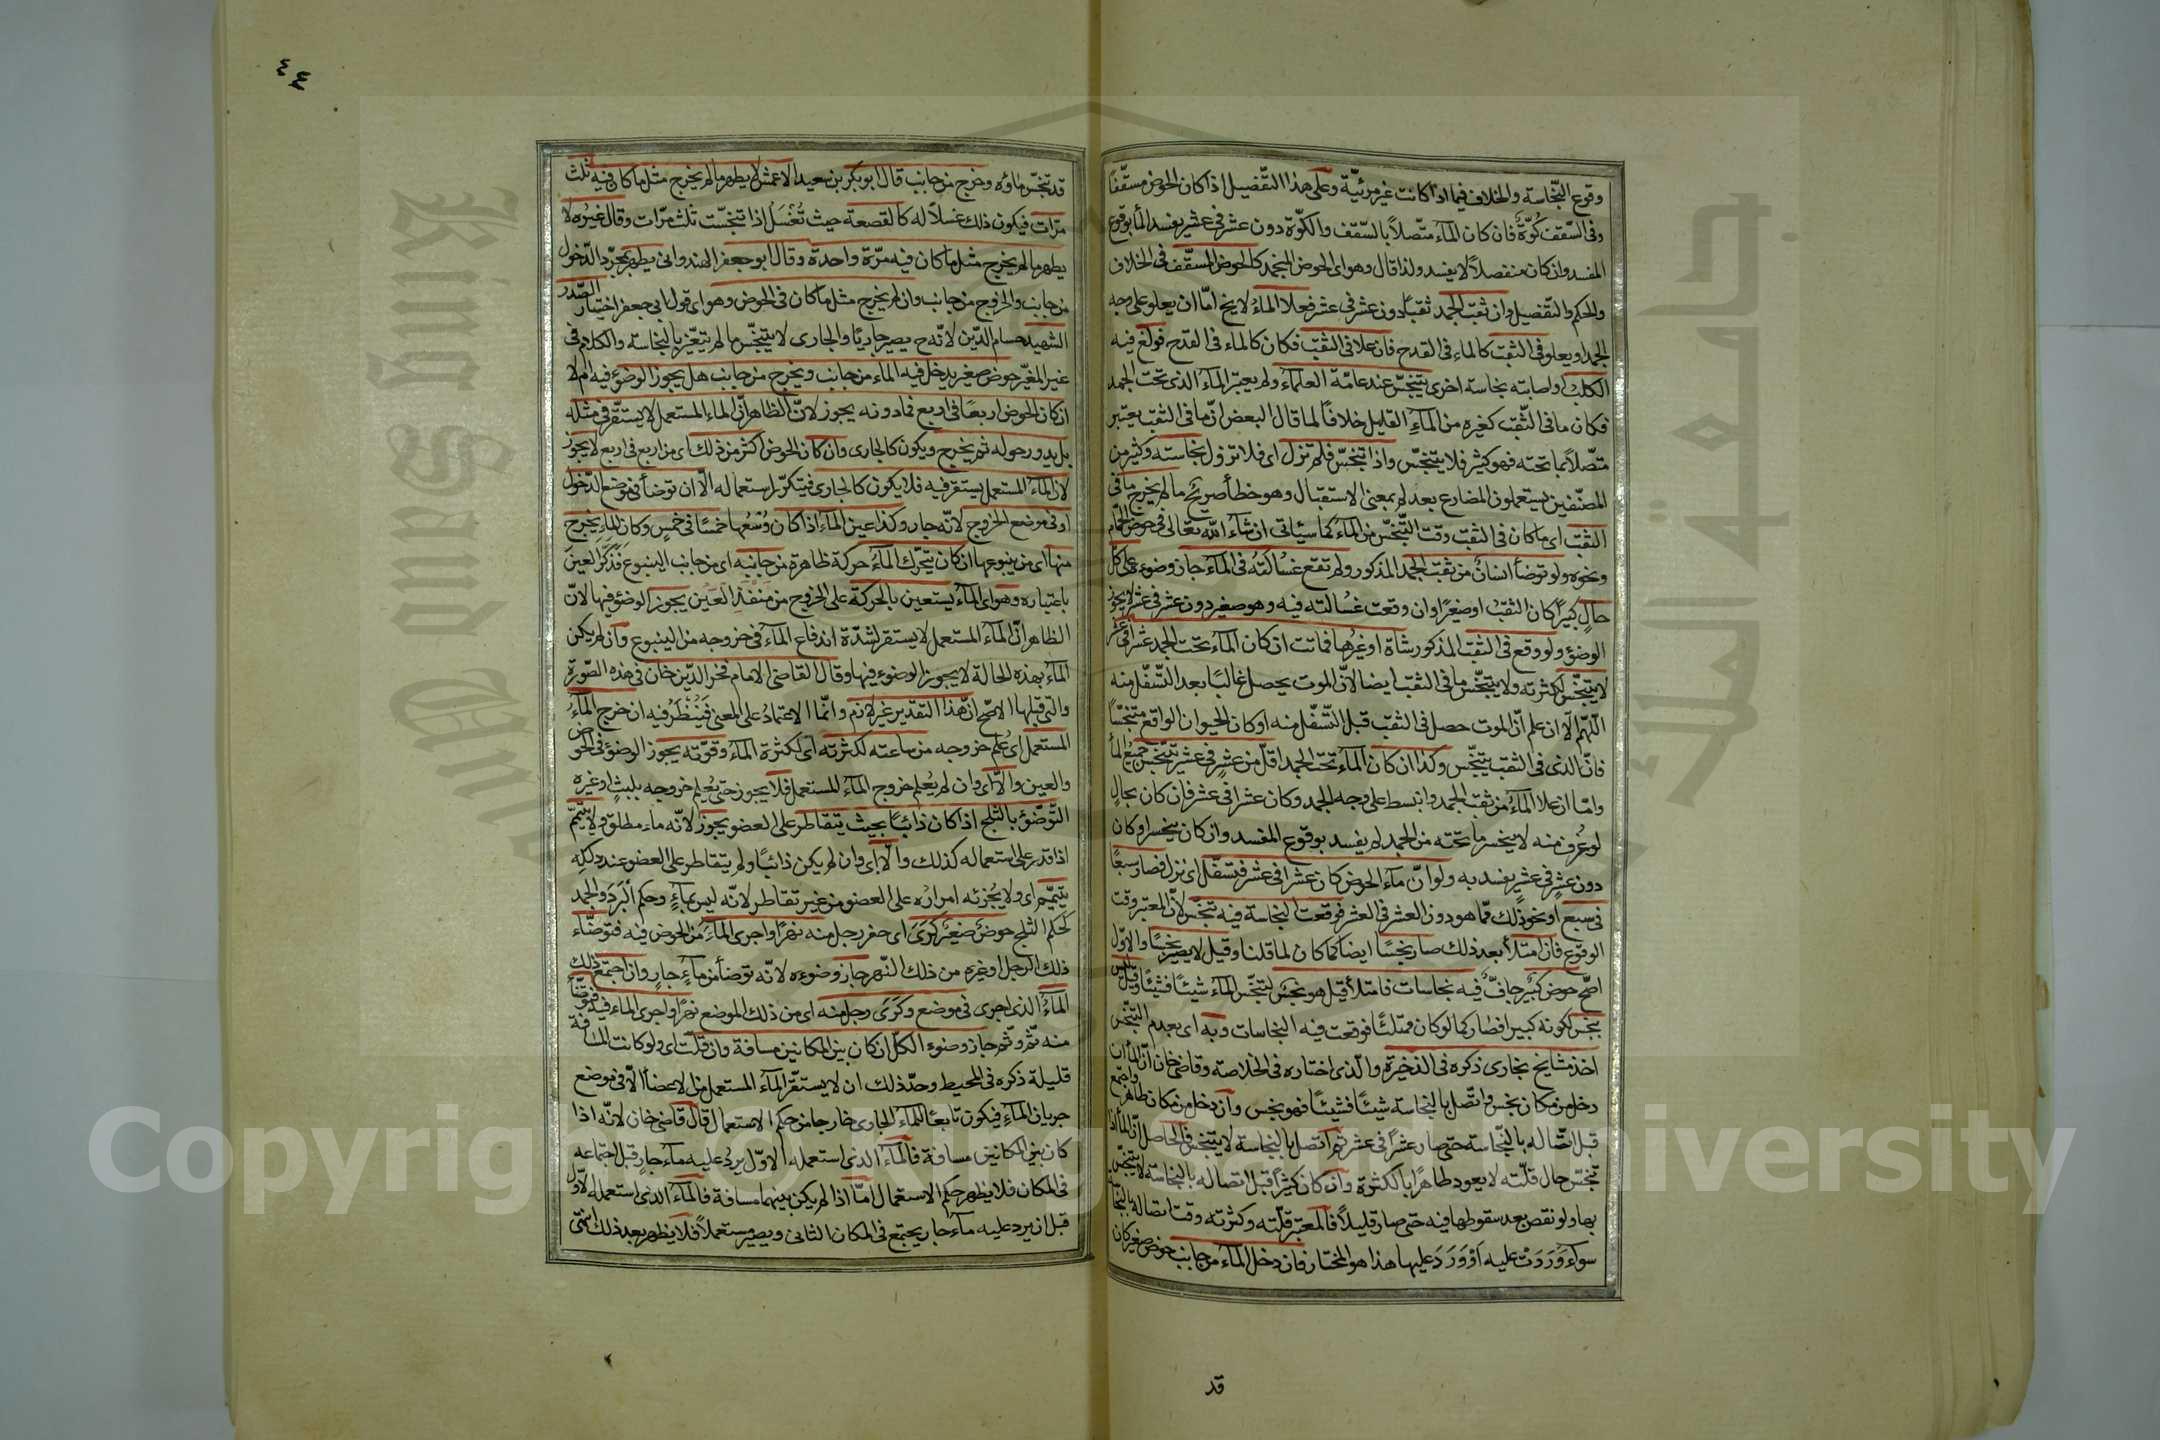 وقوع النّجاسة والخلاف فيما اذا كانت غير مرئيّة وعلى هذا التّفصيل اذا كان الحوض مسقّفًا
وفى السّقف كُوّةٌ فان كان المآء متّصلاً بالسّقف والكّوة دون عشر فى عشر يفسد المآ بوقوع
المفسد وان كان منفصلاً لا يفسد ولذا قال وهو اى الحوض المنجمد كالحوض المسقّف فى الخلاف
والحكم والتّفصيل وان ثقب الجمد ثقبًا دون عشر فى عشر فعلا المآءُ لا يخ امّا ان يعلو على وجه
الجمد او يعلو فى الثقب كالماء فى القدح فان علا فى الثقب فكان كالماء فى القدح فولغ فيه
الكلب او اصابته نجاسة اخرى يتنجّس عند عامّة العلمآء ولم يعتبر المآء الذى تحت الجمد
فكان ما فى الثّقب كغيره من المآءِ القليل خلافًا لما قال البعض انّ ما فى الثقب يعتبر
متّصلاً بما تحته فهو كثير فلا يتنجّس واذا تنجّس فلم تزل اى فلا تزول نجاسته وكثير من
المصنّفين يستعملون المضارع بعد لم بمعنى الاستقبال وهو خطأ صريح ما لم يخرج ما فى
الثقب اى ما كان فى الثقب وقت التّنجّس من المآء كما سيأتى ان شآء اللّه تعالى فى حوض الحمّام
ونحوه ولو توضأ انسانٌ من ثقب الجمد المذكور ولم تقع غسالته فى المآء جاز وضوءه على كلّ
حالٍ كبيرًا كان الثقب او صغيرًا وان وقعت غُسالته فيه وهو صغير دون عشر فى عشر لا يجوز
الوضؤ ولو وقع فى الثقب المذكور شاة او غيرُها فماتت ان كان المآء تحت الجمد عشرًا فى عشر
لا يتنجّس لكثرته ولا يتنجّس ما فى الثقب ايضا لانّ الموت يحصل غالبًا بعد التّسفّل منه
اللّهمّ الّا ان علم انّ الموت حصل فى الثقب قبل التّسفّل منه او كان الحيوان الواقع متنجّسًا
فانّ الذى فى الثقب يتنجّس وكذا ان كان المآء تحت الجمد اقلّ من عشرٍ فى عشر تنجّس جميعُ المآ
وامّا ان علا المآءُ من ثقب الجمد وانبسط على وجه الجمد وكان عشرًا فى عشر فان كان بحالٍ
لو غُرف منه لا ينحسر ما تحته من الجمد لم يفسد بوقوع المفسد وان كان ينحسر او كان
دون عشرٍ فى عشرٍ يفسد به ولو انّ مآء الحوض كان عشرًا فى عشر فتسفّل اى نزل فصار سبعًا
فى سبع او نحو ذلك ممّا هو دون العشر فى العشر فوقعت النجاسة فيه تنجّس لانّ المعتبر وقت
الوقوع فان امتلأ بعد ذلك صار نجسًا ايضا كما كان لما قلنا وقيل لا يصير نجسًا والاوّل
اصحّ حوض كبيرٌ جافّ فيه نجاسات فامتلأ قيل هو نجس لتنجّس المآء شيئًا فشيئًا وقيل ليس
بنجس لكونه كبيرا فصار كما لو كان ممتلئًا فوقعت فيه النجاسات وبه اى بعدم التّنجّس
اخذ مشايخ بخارى ذكره فى الذخيرة والذى اختاره فى الخلاصة وقاضى خان انّ المآ ان
دخل من مكان نجس واتّصل بالنجاسة شيئًا فشيئًا فهو نجس وان دخل من مكان طاهر واجتمع
قبل اتّصاله بالنّجاسة حتى صار عشرًا فى عشر ثم اتصل بالنجاسة لا يتنجس والحاصل انّ المآ اذا
تنجّس حال قلّته لا يعود طاهرًا بالكثرة وان كان كثيرًا قبل اتصاله بالنجاسة لا يتنجّس
بها ولو نقص بعد سقوطها فيه حتى صار قليلاً فالمعتبر قلّته وكثرته وقت اتصاله بالنجاسة
سوآء وَرَدَتْ عليه اَوْ وَرَدَ عليها هذا هو المختار فان دخل المآء من جانب حوض صغير كان
قد
٤٤
قد تنجّس مآؤه وخرج من جانب قال ابو بكر بن سعيد الاعمش لا يطهر ما لم يخرج مثل ما كان فيه ثلث
مرّات فيكون ذلك غسلاً له كالقصعة حيث تُغْسَل اذا تنجّست ثلث مرّات وقال غيره لا
يطهر ما لم يخرج مثل ما كان فيه مرّة واحدة وقال ابو جعفر الهندوانى يطهر بمجرّد الدّخول
من جانب والخروج من جانب وان لم يخرج مثل ما كان فى الحوض وهو اى قول ابى جعفر اختيار الصّدر
الشهيد حسام الدّين لانّه ح يصير جاريًا والجارى لا يتنجّس ما لم يتغيّر بالنجاسة والكلام فى
غير المغيّر حوض صغير يدخل فيه الماء من جانب ويخرج من جانب هل يجوز الوضوء فيه ام لا
ان كان الحوض اربعًا فى اربع فما دونه يجوز لانّ الظاهر انّ الماء المستعمل لا يستقرّ فى مثله
بل يدور حوله ثم يخرج ويكون كالجارى وان كان الحوض اكثر من ذلك اى من اربع فى اربع لا يجوز
لان المآء المستعمل يستقر فيه فلا يكون كالجارى فيتكرّر استعماله الّا ان توضأ فى موضع الدّخول
او فى موضع الخروج لانّه جار وكذا عين المآء اذا كان وُسْعُها خمسًا فى خمس وكان المآء يخرج
منها اى من ينبوعها ان كان يتحرّك المآءُ حركة ظاهرة من جانبه اى من جانب الينبوع فَذَكَّرَ العينَ
باعتباره وهو اى المآء يستعين بالحركة على الخروج من منفذ العَين يجوز الوضوء فيها لانّ
الظاهر انّ المآء المستعمل لا يستقر لشدّة اندفاع المآء فى خروجه من الينبوع وان لم يكن
المآء بهذه الحالة لا يجوز الوضوء فيها وقال القاضى الامام فخر الدّين خان فى هذه الصّورة
والتى قبلها الاصحّ انّ هذا التقدير غير لازم وانّما الاعتمادُ على المعنى فَيُنْظَرُ فيه ان خرج المآءُ
المستعمل اى عُلم خروجه من ساعته لكثرته اى لكثرة المآء وقوّته يجوز الوضوء فى الحوض
والعين والّا اى وان لم يُعلم خروج المآء المستعمل فلا يجوز حتى يُعلم خروجه بلبثٍ او غيره
التّوضّؤ بالثلج اذا كان ذائبًا بحيث يتقاطر على العضو يجوز لانّه ماء مطلق ولا يتيمّم
اذا قدر على استعماله كذلك والّا اى وان لم يكن ذائبًا ولم يتقاطر على العضو عند دلكه
يتيمّم اى ولا يُجزئه امراره على العضو من غير تقاطر لانّه ليس بمآءٍ وحكم البَرَد والجمد
كَحكم الثلج حوض صغيرٌ كَرَى اى حفر رجل منه نهرًا واجرى المآءَ من الحوض فيه فتوضّاء
ذلك الرجل او غيره من ذلك النّهر جاز وضوءه لانّه توضأ من مآءٍ جارٍ وان اجتمع ذلك
المآءُ الذى اجرى فى موضع وكَرَى رجل منه اى من ذلك الموضع نهرًا واجرى الماء فيه فتوضّأ
منه ثمّ وثم جاز وضوء الكلّ ان كان بين المكانين مسافة وان قلّت اى ولو كانت المسافة
قليلة ذكره فى المحيط وحدّ ذلك ان لا يستقرّ المآء المستعمل من الاعضآء الّا فى موضع
جريان المآءِ فيكون تابعًا للمآء الجارى خارجا من حكم الاستعمال قال قاضى خان لانّه اذا
كان بين المكانين مسافة فالمآء الذى استعمله الاوّل يرد عليه مآء جارٍ قبل اجتماعه
فى المكان فلا يظهر حكم الاستعمال امّا اذا لم يكن بينهما مسافة فالمآء الذى استعمله الاوّل
قبل ان يرد عليه مآء جار يجتمع فى المكان الثانى ويصير مستعملاً فلا يطهر بعد ذلك انتهى
جامعة الملك سعود
King Saud University
Copyright © King Saud University